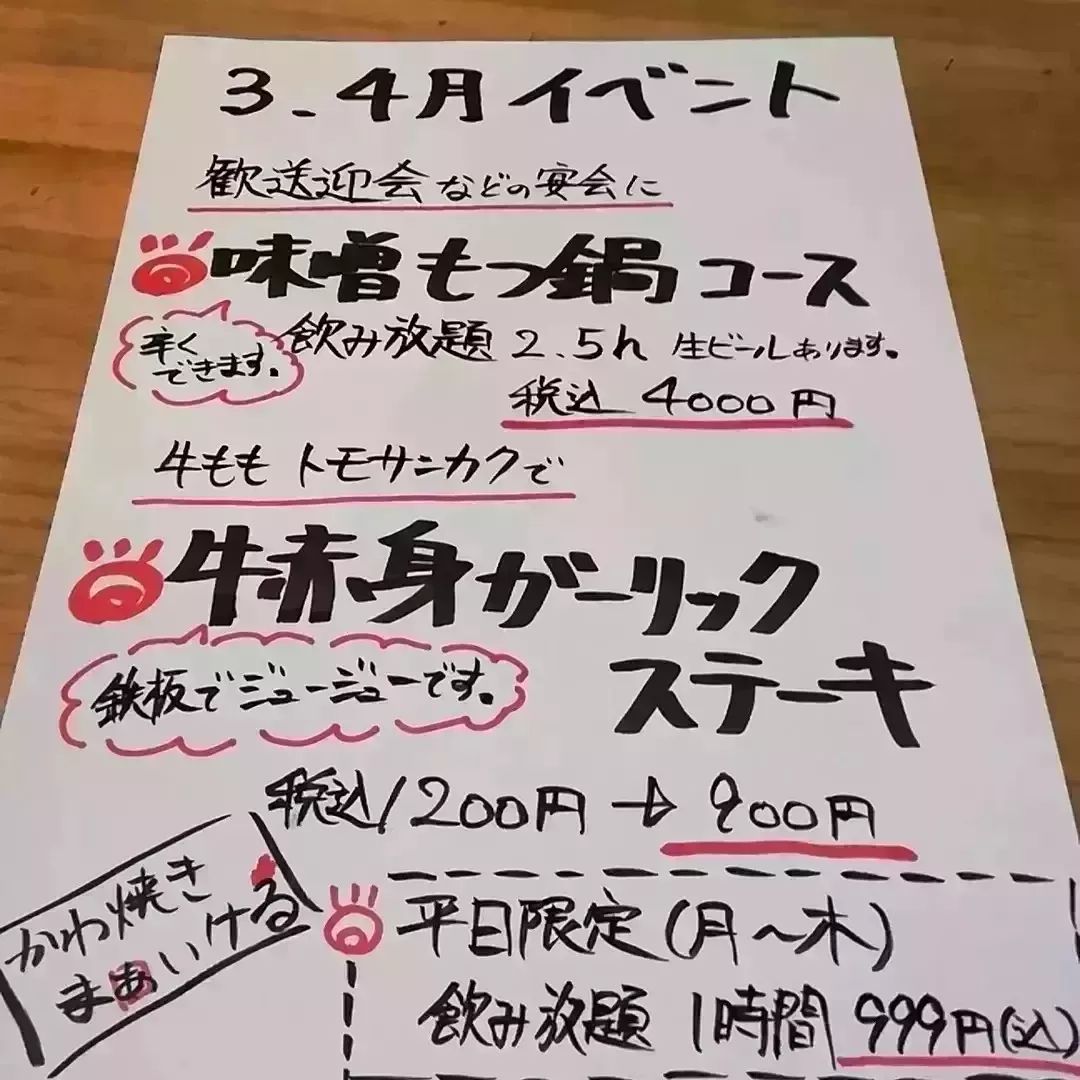 3.4月イベント
歓送迎会などの宴会に
味噌もつ鍋コース
辛く
できます。
飲み放題 2.5h 生ビールあります。
税込 4000円
牛もも トモサンカクで
牛赤身ガーリック
ステーキ
鉄板でジュージューです。
税込1200円→900円
かわ焼き
まあいける
平日限定(月〜木)
飲み放題 1時間 999円(込)